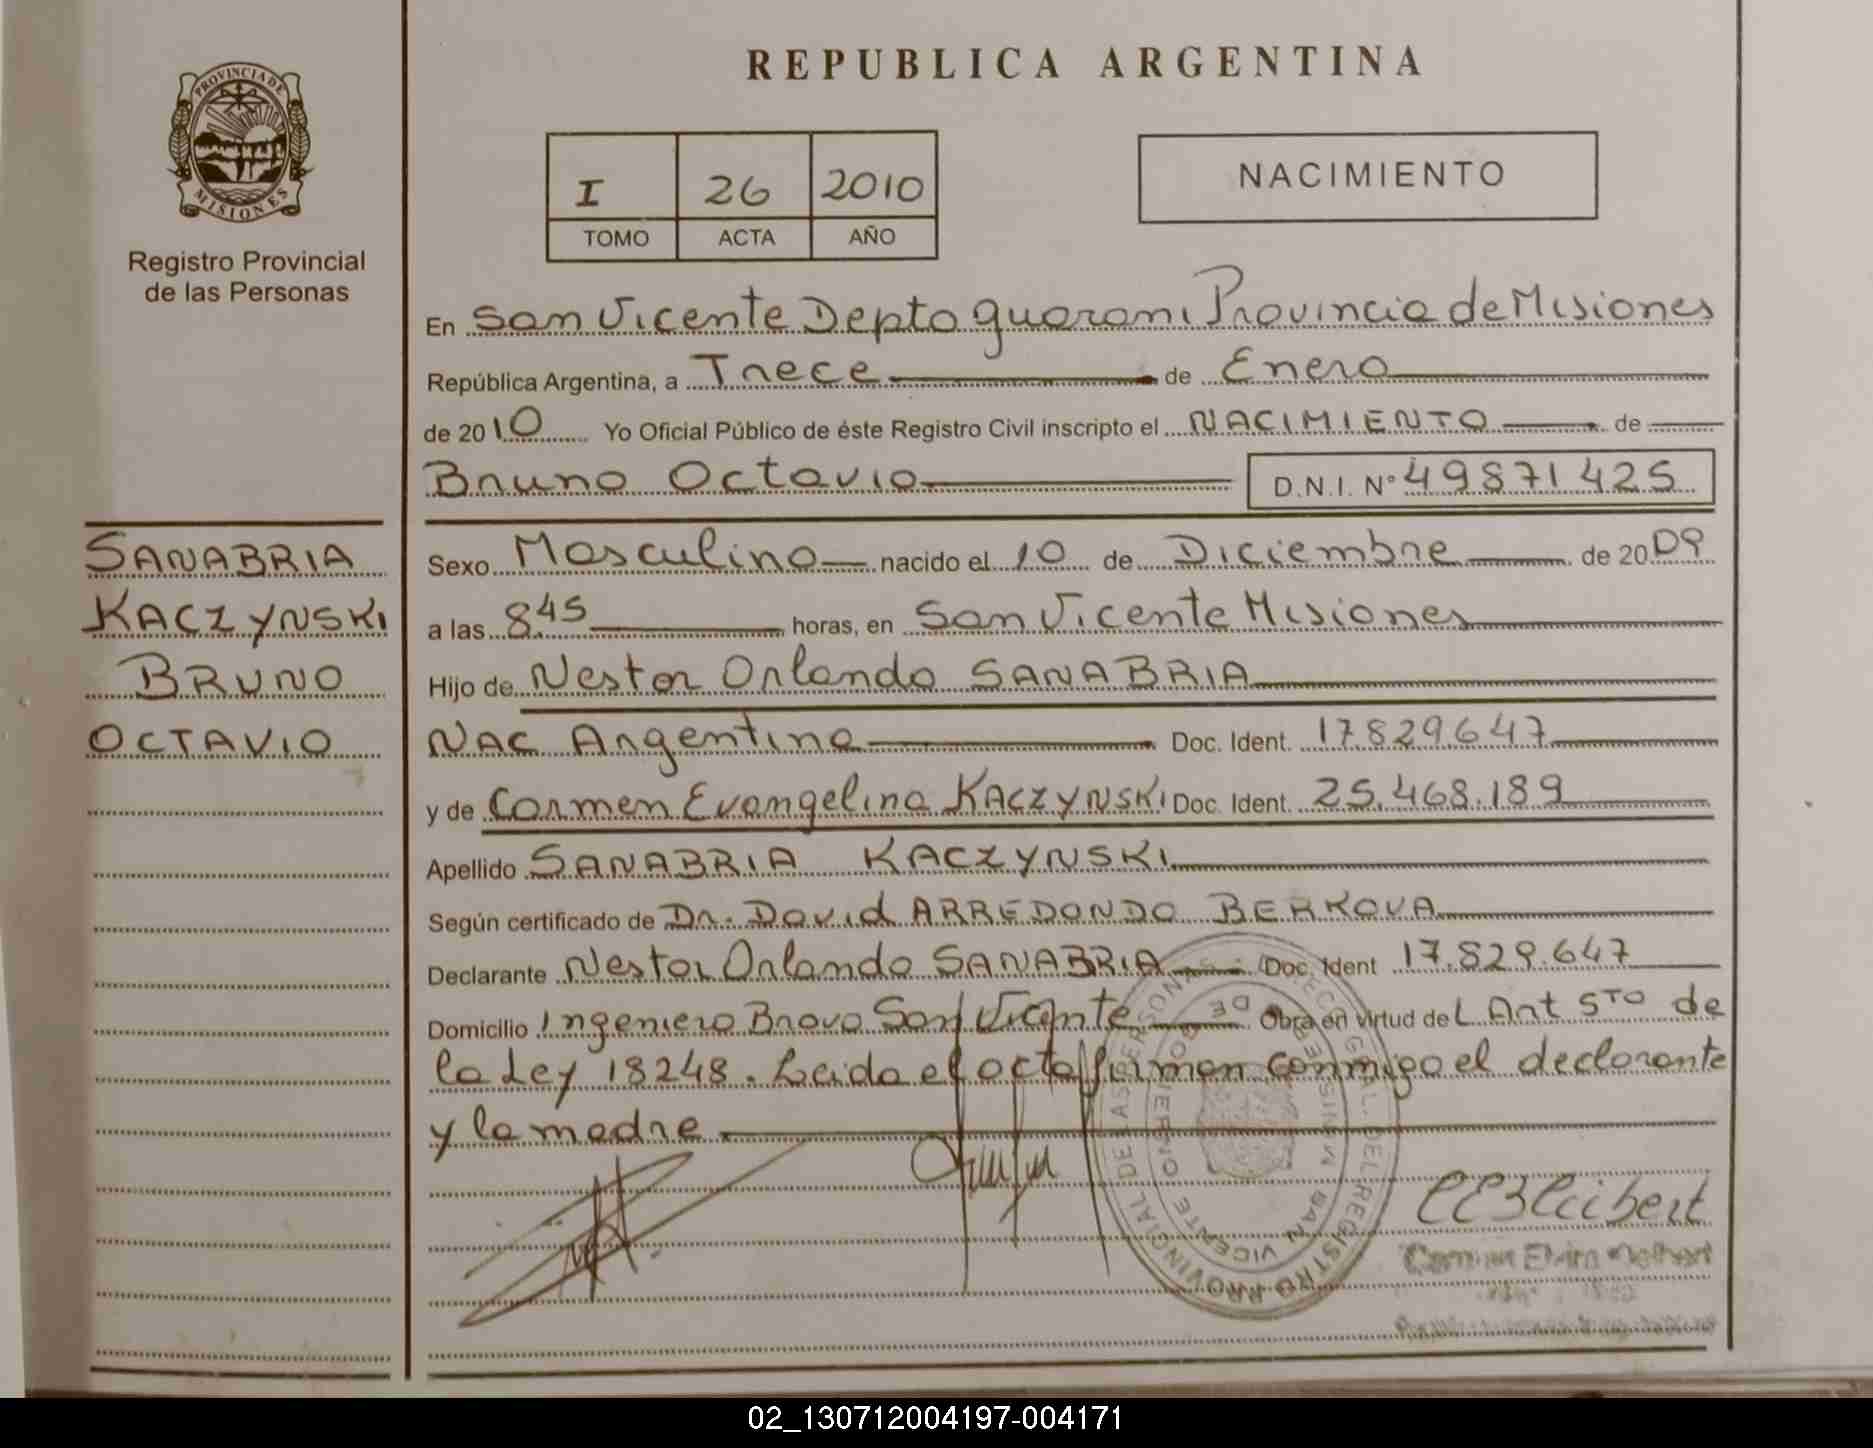 REPUBLICA ARGENTINA
PROVINCIA DE
MISIONES
Registro Provincial
de las Personas
I 26 2010
TOMO ACTA AÑO
NACIMIENTO
En San Vicente Depto guarani Provincia de Misiones
República Argentina, a Trece de Enero
de 2010 Yo Oficial Público de éste Registro Civil inscripto el NACIMIENTO de
Bruno Octavio D.N.I. Nº 49871425
SANABRIA
KACZYNSKI
BRUNO
OCTAVIO
Sexo Masculino nacido el 10 de Diciembre de 2009
a las 8.45 horas, en San Vicente Misiones
Hijo de Nestor Orlando SANABRIA
Nac Argentina Doc. Ident. 17829.647
y de Carmen Evangelina KACZYNSKI Doc. Ident. 25.468.189
Apellido SANABRIA KACZYNSKI
Según certificado de Dr. David ARREDONDO BERKOVA
Declarante Nestor Orlando SANABRIA Doc. Ident 17.829.647
Domicilio Ingeniero Bravo San Vicente Obra en virtud del Art 5to de
la Ley 18248. Leida el acta firman conmigo el declarante
y la madre
02_130712004197-004171